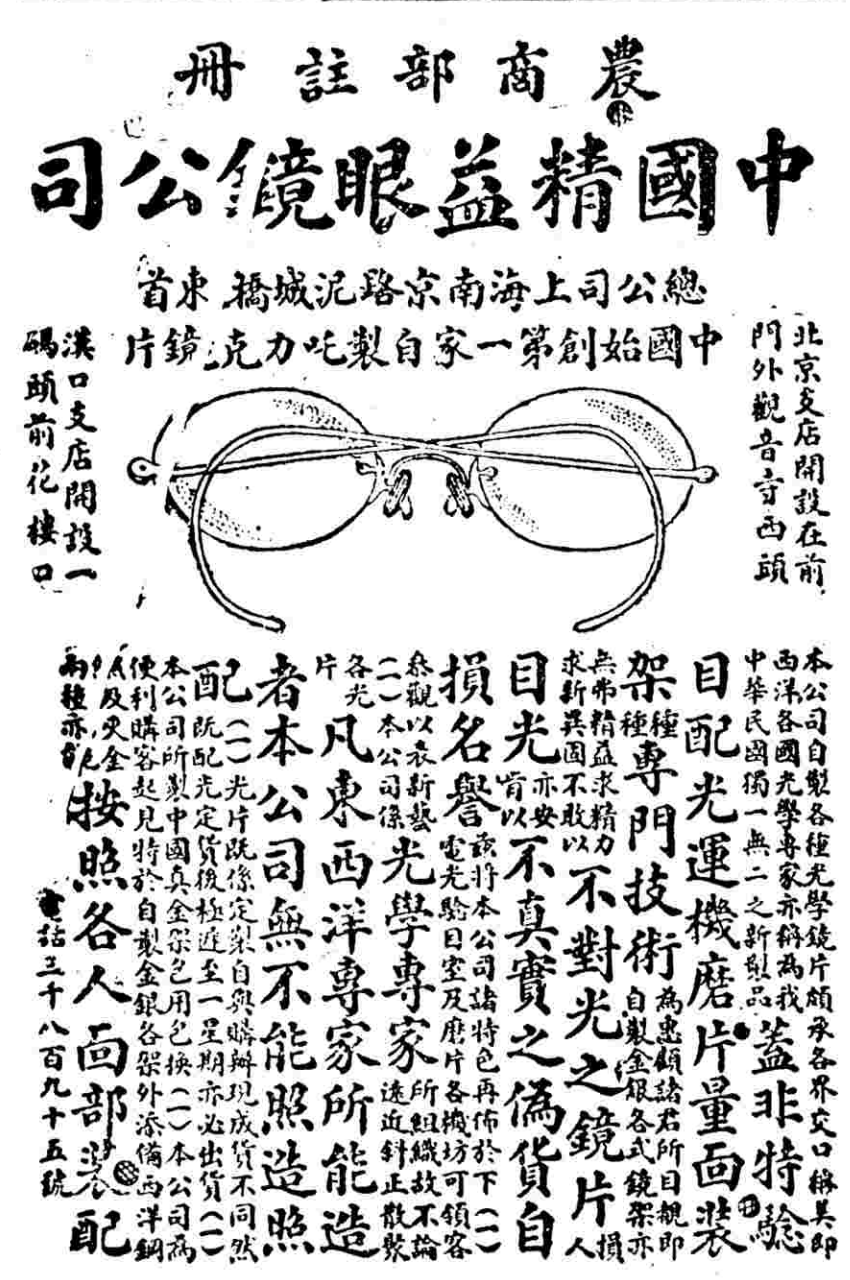 農商部註冊
中國精益眼鏡公司
總公司上海南京路泥城橋東首
中國始創第一家自製吒力克鏡片
北京支店開設在前
門外觀音寺西頭
漢口支店開設一
碼頭前花樓口
本公司自製各種光學鏡片頗承各界交口稱美即
西洋各國光學專家亦稱為我
中華民國獨一無二之新製品
蓋非特驗
目配光運機磨片量面裝
架
種種
專門技術
為惠顧諸君所目覩即
自製金銀各式鏡架亦
無弗精益求精力
求新異固不敢以
不對光之鏡片
損人
目光
亦安
肯以
不真實之偽貨自
損名譽
茲將本公司諸特色再佈於下(一)
電光驗目室及磨片各機坊可領客
參觀以表新藝
(一)本公司係
光學專家
所組織故不論
遠近斜正散聚
各光
片
凡東西洋專家所能造
者本公司無不能照造照
配
(一)光片既係定製自與購辦現成貨不同然
既配光定貨後極遲至一星期亦必出貨(一)
本公司所製中國真金架包用包換(一)本公司為
便利購客起見特於自製金銀各架外添備西洋鋼
及夾金
兩種亦
按照各人面部裝配
電話三千八百九十五號